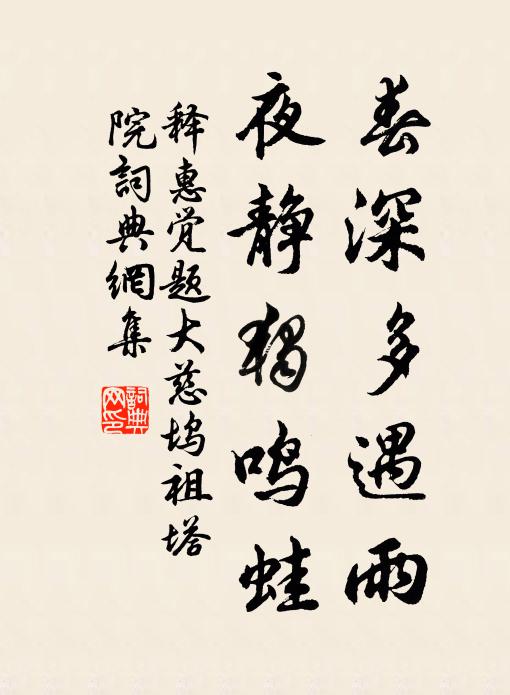 春深多遇雨
夜静独鸣蛙
释惠觉题大慈坞祖塔
院詞典網集
詞典网印